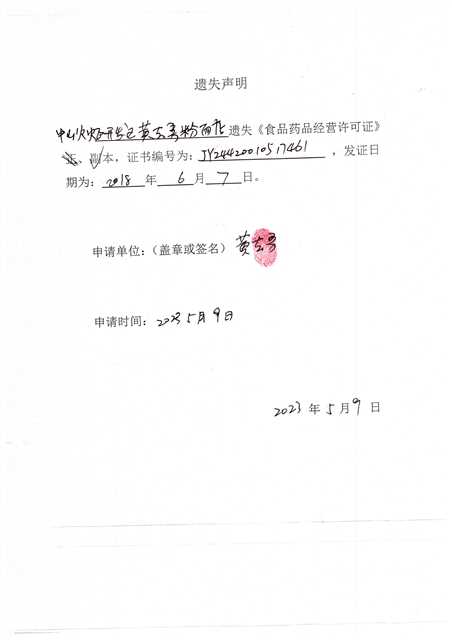 遗失声明
中山火炬开发区黄志勇粉面店遗失《食品药品经营许可证》
正、副本，证书编号为：JY24420010517461，发证日
期为：2018 年 6 月 7 日。
申请单位：（盖章或签名）黄志勇
申请时间：2023 5月9日
2023 年 5 月 9 日